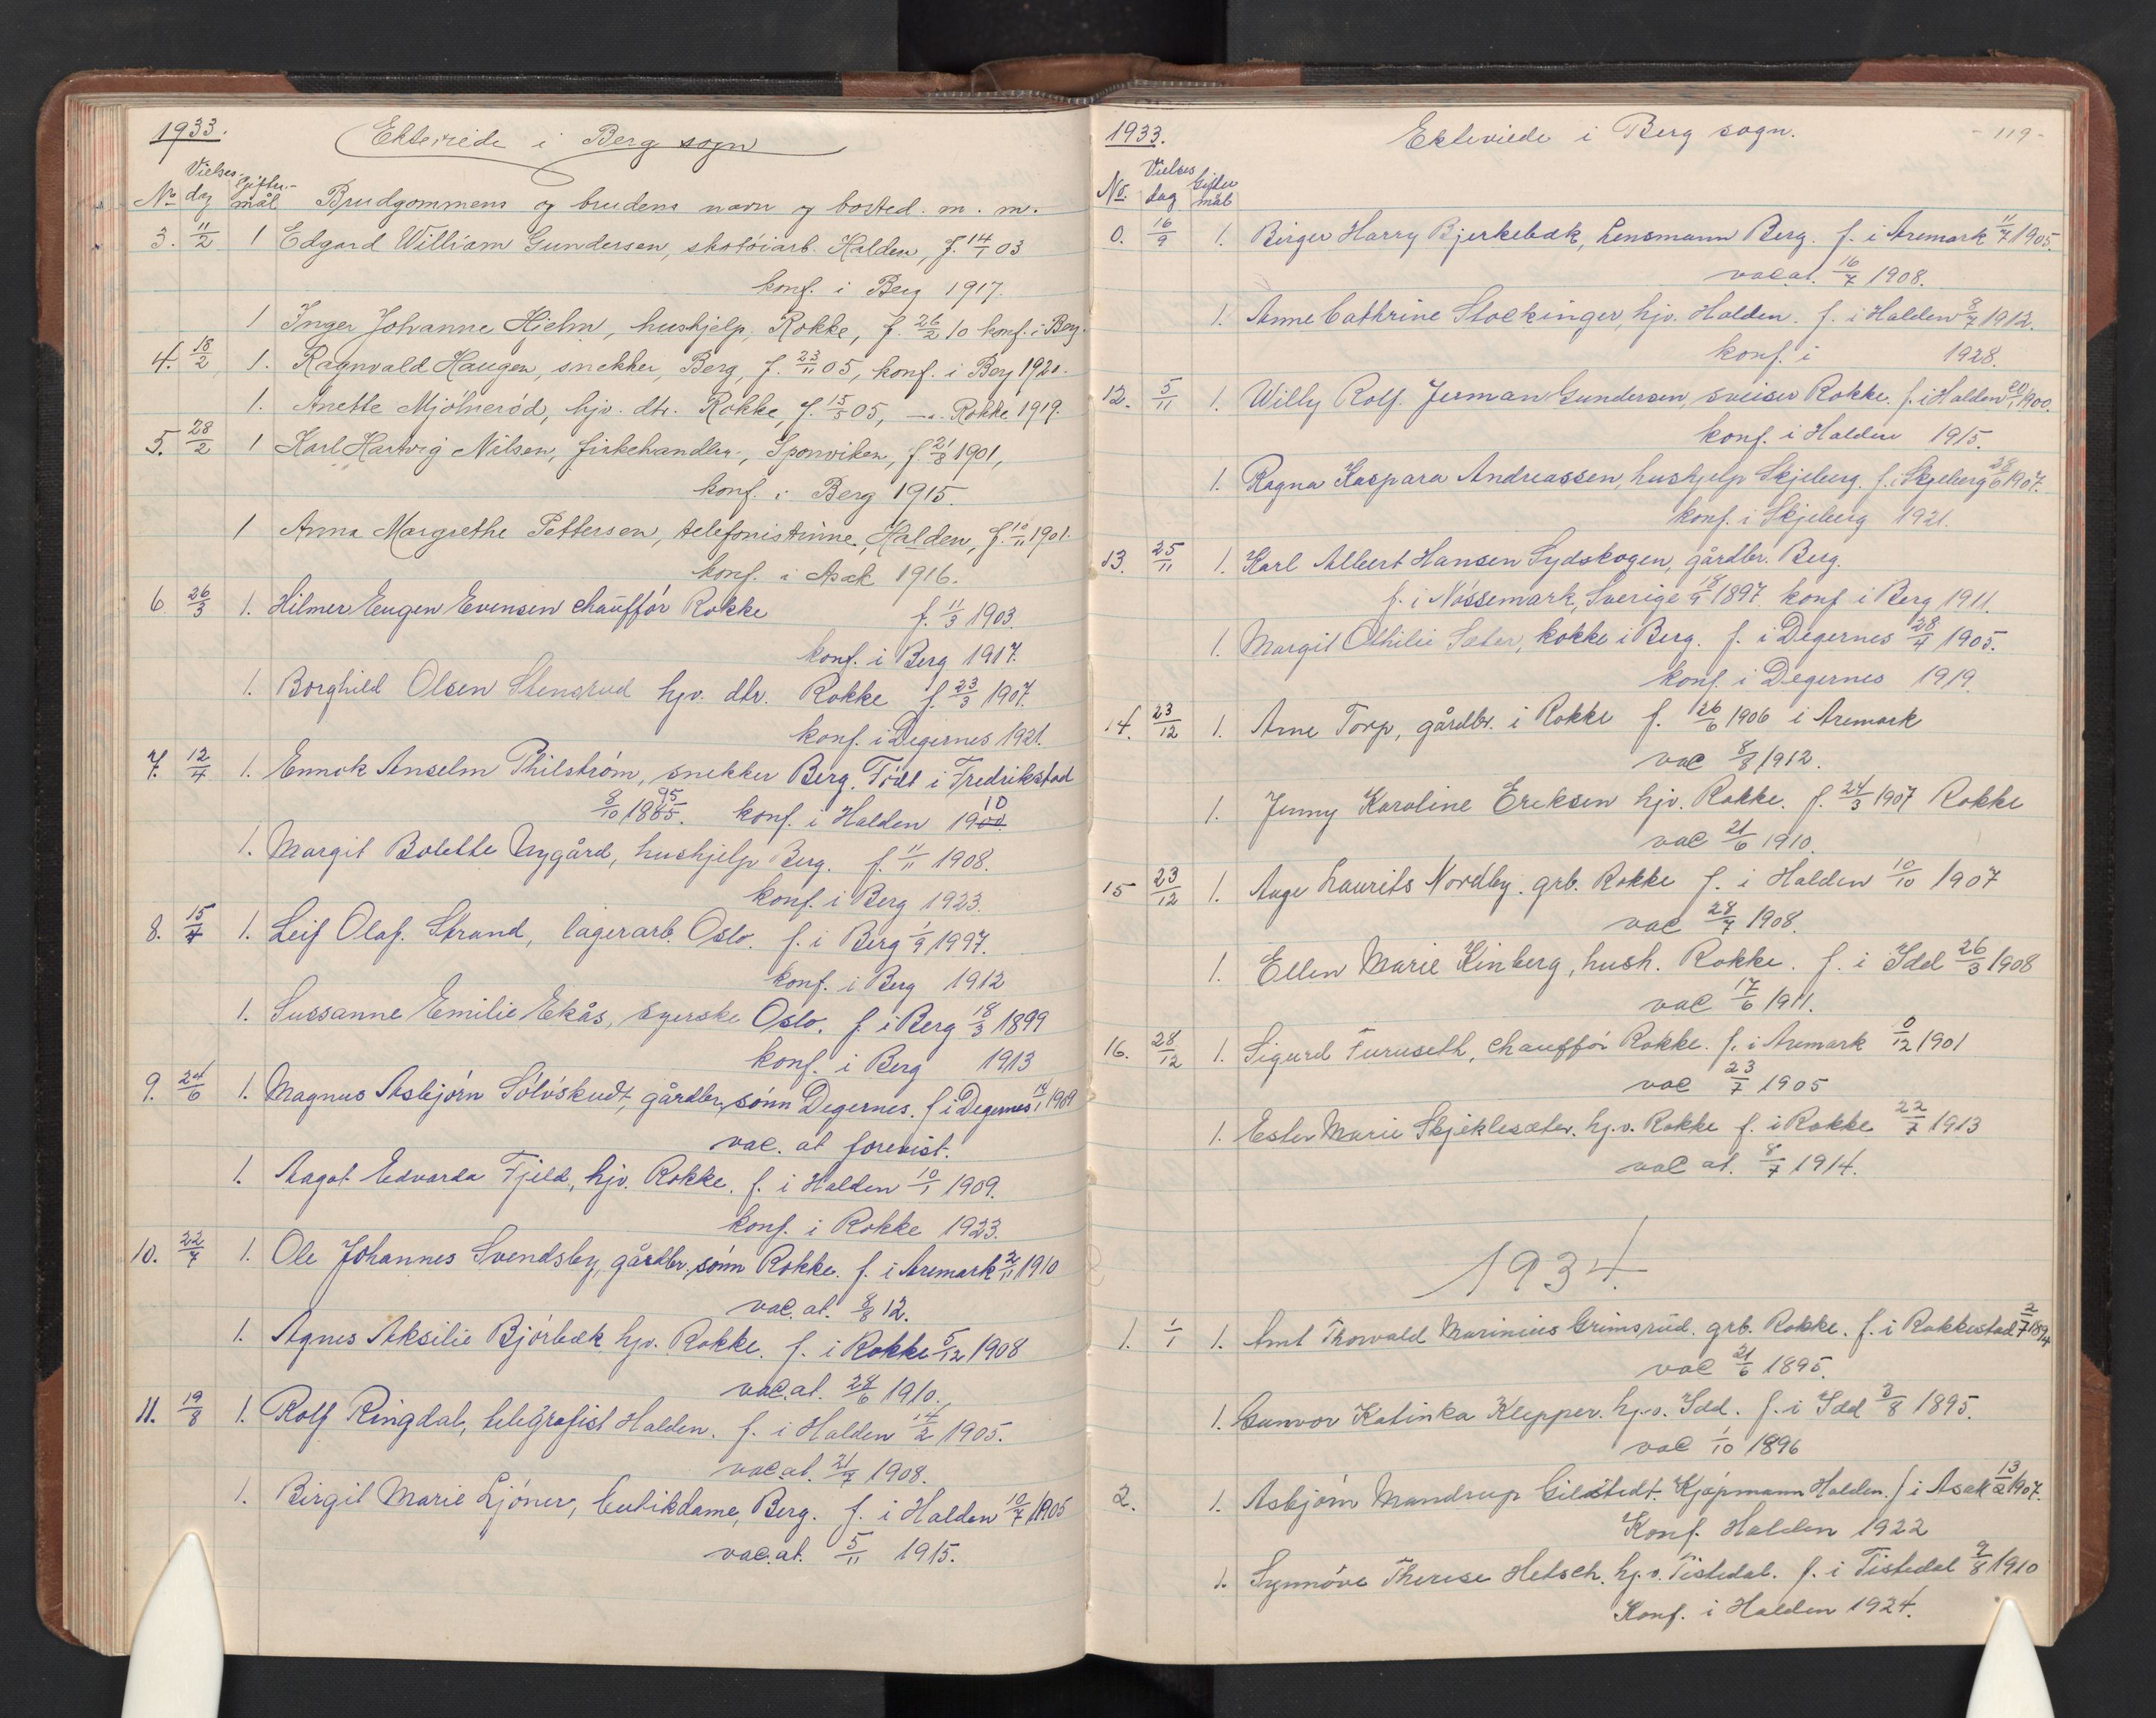 1933. Ekteviede i Berg sogn
Vielses- Gifter-
No dag mål Brudgommens og brudens navn og bosted m. m.
3. 11/2 1 Edgard William Gundersen, skotøiarb. Halden, f. 14/7 03
konf. i Berg 1917.
1 Inger Johanne Hjelm, hushjelp, Rokke, f. 26/2 10 konf. i Berg.
4. 18/2 1. Ragnvald Haugen, snekker, Berg, f. 23/11 05, konf. i Berg 1920.
1. Anette Mjølnerød, hjv. dtr. Rokke, f. 15/5 05, —"— Rokke 1919.
5. 28/2 1 Karl Hartvig Nilsen, fiskehandler, Sponviken, f. 21/8 1901,
konf. i Berg 1915.
1 Anna Margrethe Pettersen, telefonistinne, Halden, f. 10/11 1901.
konf. i Asak 1916.
6 26/3 1. Hilmer Eugen Evensen chauffør Rokke f. 11/3 1903.
konf. i Berg 1917.
1. Borghild Olsen Stensrud hjv. dtr. Rokke f. 23/3 1907.
konf. i Degernes 1921.
7. 12/4 1. Ennok Anselm Philstrøm, snekker Berg. Født i Fredrikstad
8/10 1885. 95 konf. i Halden 1900. 10
1. Margit Bolette Nygård, hushjelp Berg. f. 11/11 1908.
konf. i Berg 1923.
8. 15/4 1. Leif Olaf. Strand, lagerarb. Oslo. f. i Berg 1/9 1997.
konf. i Berg 1912
1. Sussanne Emilie Ekås, syerske Oslo. f. i Berg 18/3 1899
konf. i Berg 1913
9. 24/6 1. Magnus Asbjørn Sølvskudt, gårdbr. sønn Degernes. f. i Degernes 1909
vac. at forevist.
1. Aagot Edvarda Fjeld, hjv. Rokke. f. i Halden 10/1 1909.
konf. i Rokke 1923.
10. 22/7 1. Ole Johannes Svendsby, gårdbr. sønn Rokke. f. i Aremark 2/11 1910
vac. at. 8/8 12.
1. Agnes Aksilie Bjørbæk hjv. Rokke. f. i Rokke 5/12 1908
vac. at. 28/6 1910.
11. 19/8 1. Rolf Ringdal, telegrafist Halden. f. i Halden 14/2 1905.
vac. at. 21/7 1908.
1. Birgit Marie Ljóner, butikdame, Berg. f. i Halden 10/7 1905
vac. at. 5/11 1915.
1933. Ekteviede i Berg sogn. - 119 -
Vielses Gifter
No. dag mål
0. 16/9 1. Birger Harry Bjerkebæk, Lensmann Berg. f. i Aremark 11/7 1905.
vac. at. 16/7 1908.
1. Anne Cathrine Stockinger, hjv. Halden. f. i Halden 8/7 1912.
konf. i 1928.
12. 5/11 1. Willy Rolf. Jerman Gundersen, sveiser Rokke. f. i Halden 20/1 1900.
konf. i Halden 1915.
1. Ragna Kaspara Andreassen, hushjelp Skjeberg. f. i Skjeberg 28/6 1907.
konf. i Skjeberg 1921.
13. 25/11 1. Karl Albert Hansen Sydskogen, gårdbr. Berg.
f. i Nössemark, Sverige 18/9 1897. konf i Berg 1911.
1. Margit Othilie Sæter, kokke i Berg. f. i Degernes 28/4 1905.
konf. i Degernes 1919.
14. 23/12 1. Arne Torp, gårdbr. i Rokke f. 26/6 1906 i Aremark
vac 8/8 1912.
1. Jenny Karoline Ereksen hjv. Rokke. f. 24/3 1907 Rokke
vac 21/6 1910.
15 23/12 1. Aage Laurits Nordby. grb. Rokke f. i Halden 10/10 1907
vac 28/7 1908.
1. Ellen Marie Kinberg, hush. Rokke. f. i Idd 26/3 1908
vac 17/6 1911.
16. 28/12 1. Sigurd Furuseth, chauffør Rokke. f. i Aremark 0/12 1901
vac 23/7 1905
1. Ester Marie Skjeklesæter. hj.v. Rokke f. i Rokke 22/7 1913
vac at. 8/7 1914.
1934.
1. 1/1 1. Amt Thorvald Marinius Grimsrud. grb. Rokke. f. i Rakkestad 2/7 1894
vac 21/6 1895.
1. Gunvor Katinka Klepper. hj.v. Idd. f. i Idd 3/8 1895.
vac 1/10 1896
2. 1. Asbjørn Mandrup Gilstedt. Kjøpmann Halden. f i Asak 13/2 1907.
Konf. Halden 1922
1. Synnøve Therese Hetsch. hj.v. Tistedal. f. i Tistedal 9/8 1910
Konf. i Halden 1924.